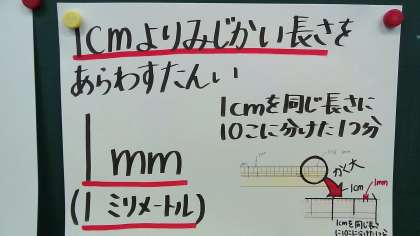 1cmよりみじかい長さを
あらわすたんい
1cmを同じ長さに
10こに分けた1つ分
1mm
(1ミリメートル)
かく大
1cm
1mm
1cmを同じ長さ
に10こに分けた1つ分